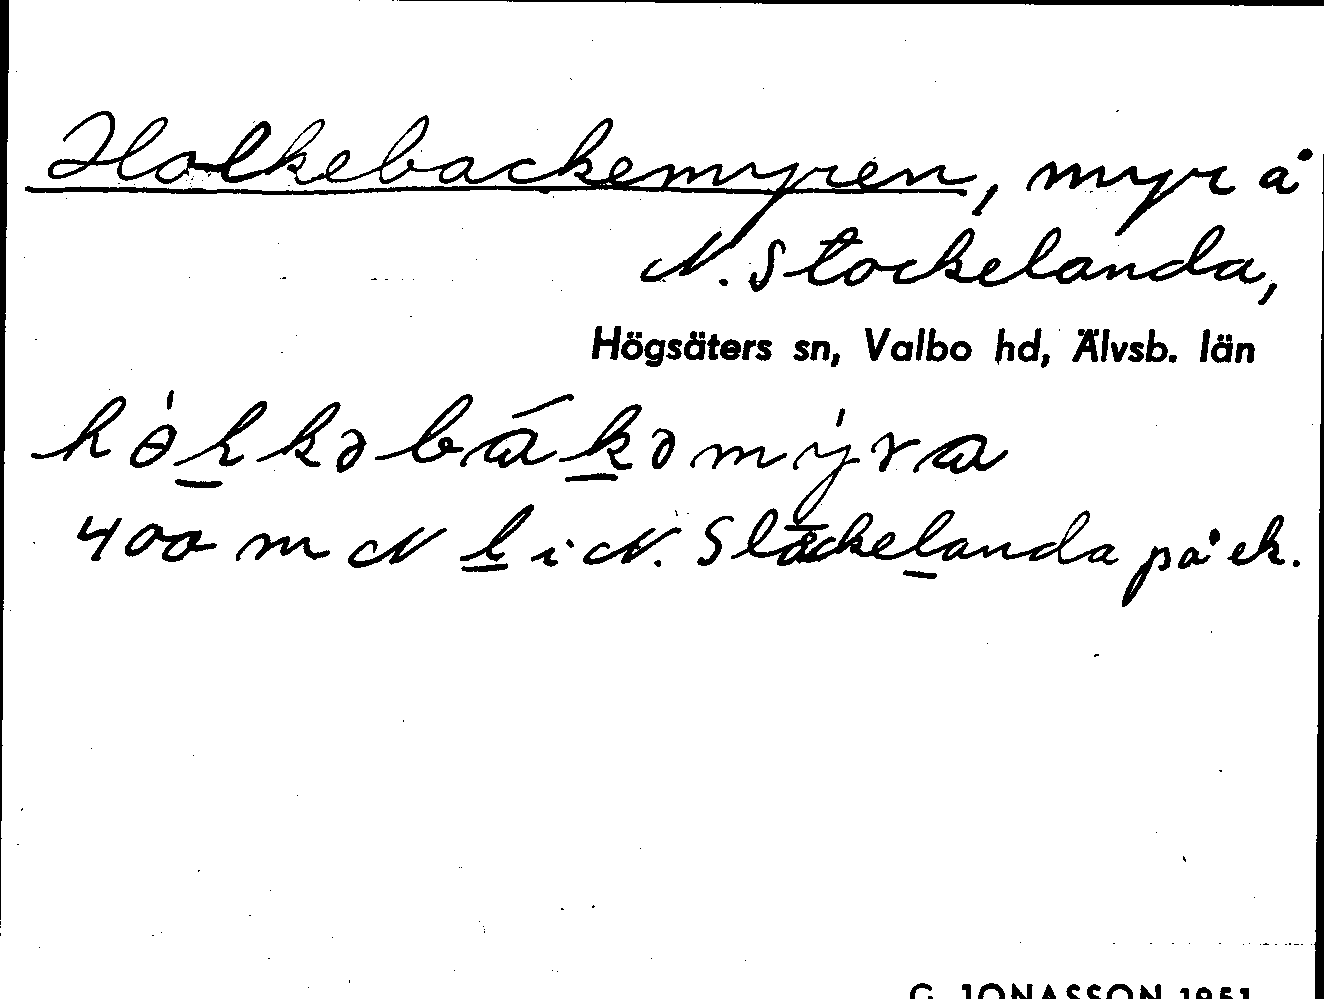 Holkebackemyren, myr å
N. Stockelanda,
Högsäters sn, Valbo hd, Älvsb. län
400 m N l i N. Stockelanda på ek.
G. JONASSON 1951